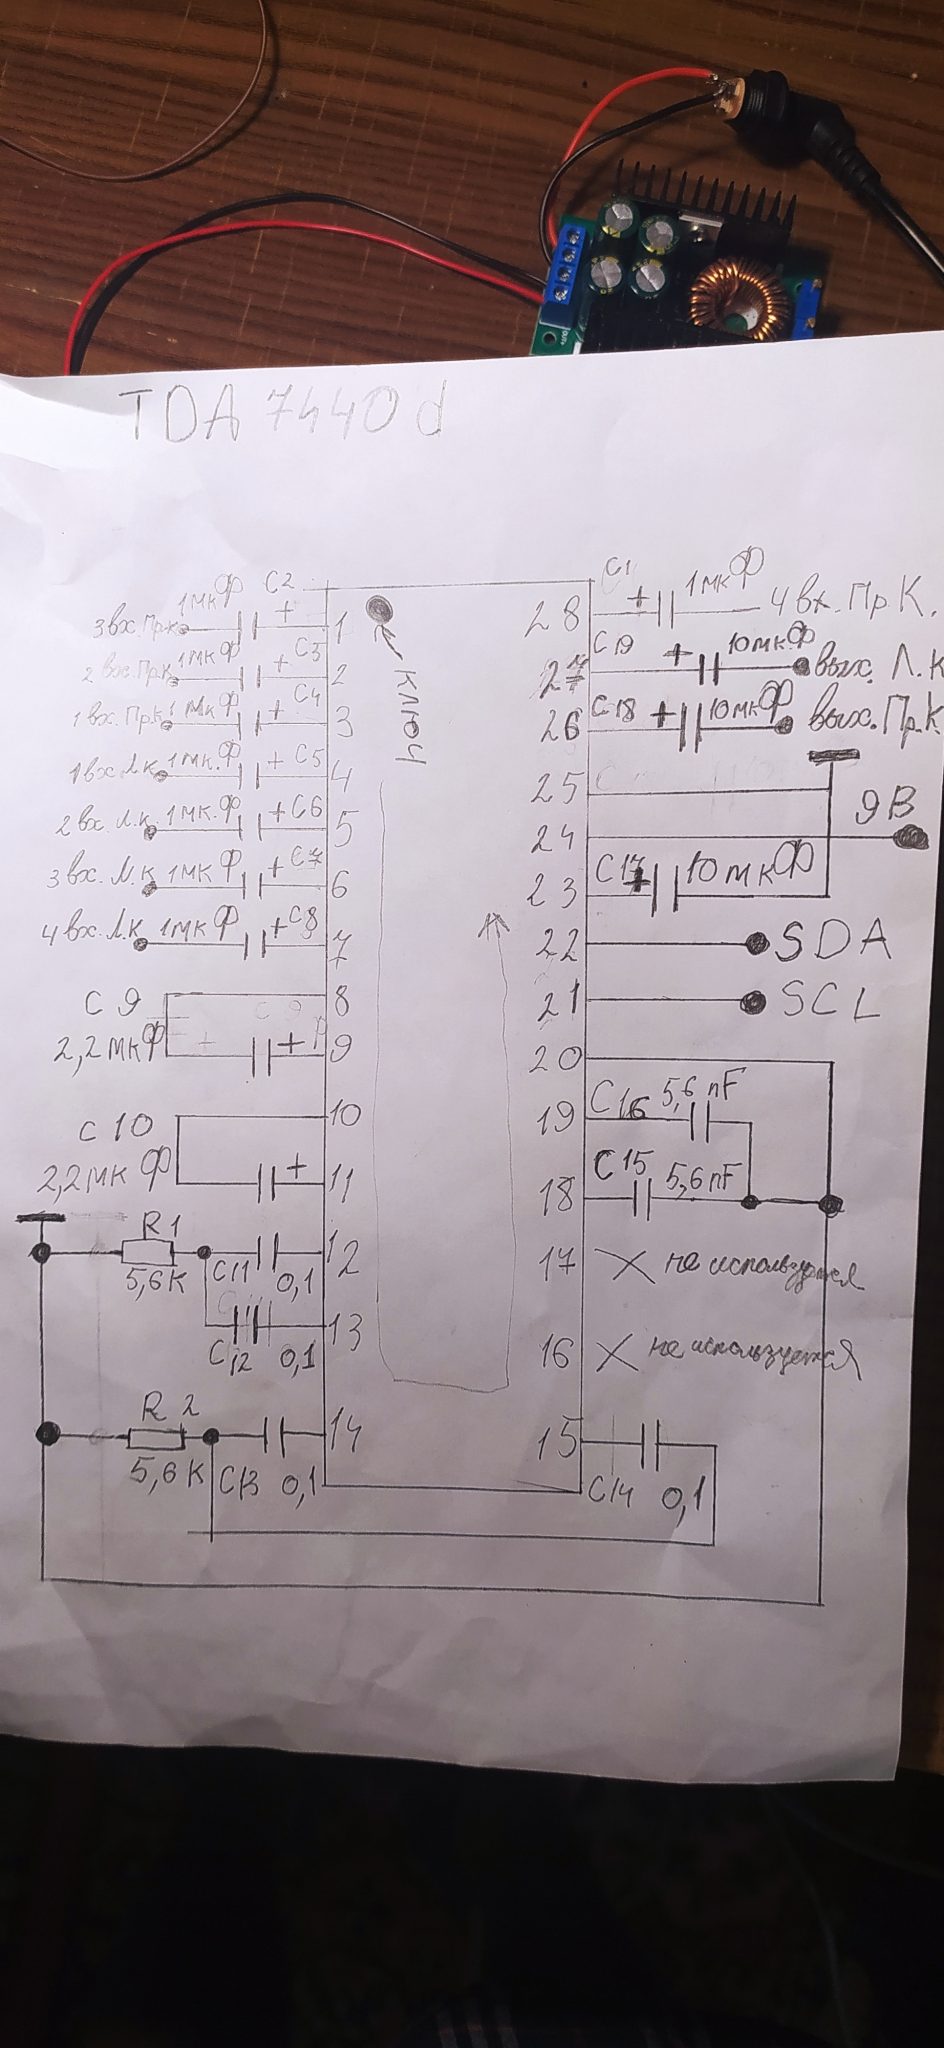 TDA 7440 d
3 вх. Пр.К 1мкФ C2 + 1
2 вх. Пр.К 1мкФ + C3 2
1 вх. Пр.К 1мкФ + C4 3
1 вх. Л.К. 1мк.Ф + C5 4
2 вх. Л.К. 1мк.Ф + C6 5
3 вх. Л.К 1мк Ф + C7 6
4 вх. Л.К 1мк Ф + C8 7
C 9 8
2,2 мкФ + 9
C 10 10
2,2 мк Ф + 11
R 1 12
5,6 К C11 0,1
13
C12 0,1
R 2 14
5,6 К C13 0,1
ключ
28 C1 + 1мкФ 4 вх. Пр К.
27 C19 + 10мкФ вых. Л.К
26 C18 + 10мкФ вых. Пр.К
25
24 9В
23 C17 + 10 мкФ
22 SDA
21 SCL
20
19 C16 5,6 nF
18 C15 5,6 nF
17 не используется
16 не используется
15
C14 0,1